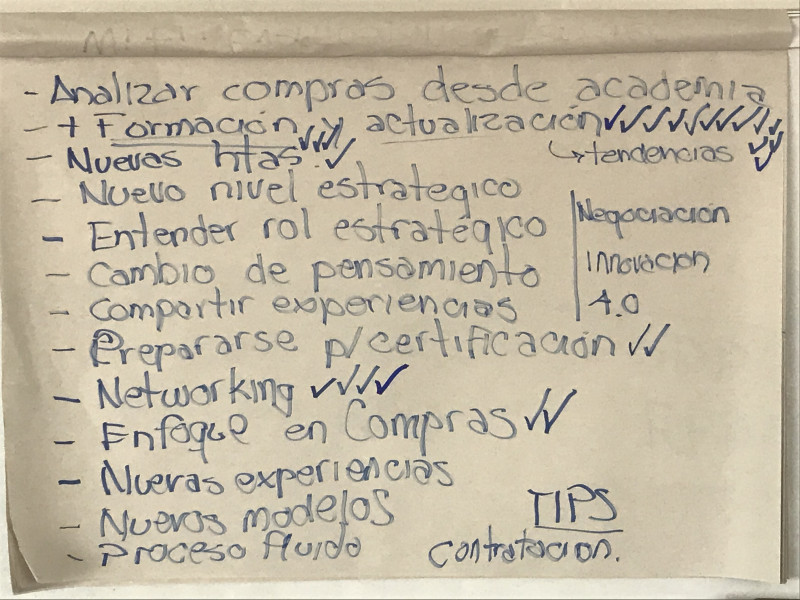 - Analizar compras desde academia
- + Formación y actualización ✓✓✓✓✓✓✓✓✓
- Nuevas htas. ✓✓✓✓
↳ tendencias ✓✓
- Nuevo nivel estrategico
- Entender rol estratégico
- Cambio de pensamiento
- Compartir experiencias
Negociación
Innovación
4.0
- Prepararse p/certificación ✓✓
- Networking ✓✓✓✓
- Enfoque en Compras ✓✓
- Nuevas experiencias
- Nuevos modelos
- Proceso fluido
TIPS
Contratacion.